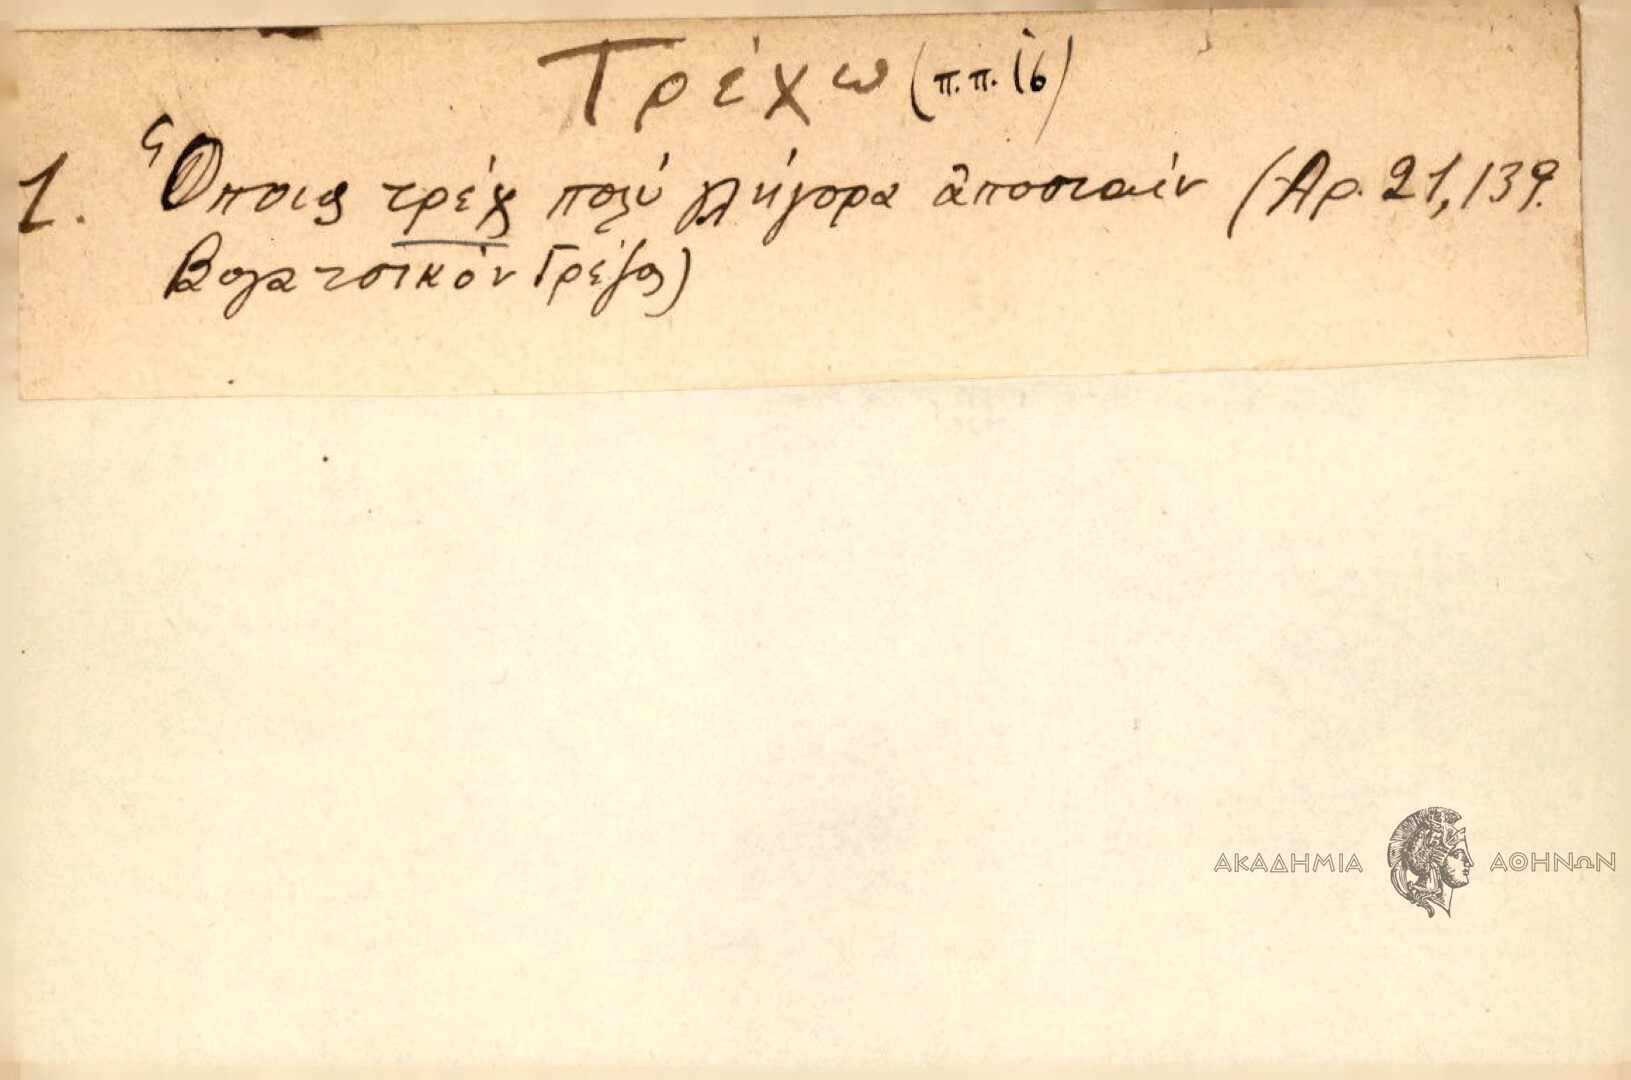 Τρέχω (π.π. 16)
1. Ὅποιος τρέχ πολύ γλήγορα ἀποσταίν (Αρ. 21, 139.
Βογατσικόν Γρέβ)
ΑΚΑΔΗΜΙΑ ΑΘΗΝΩΝ